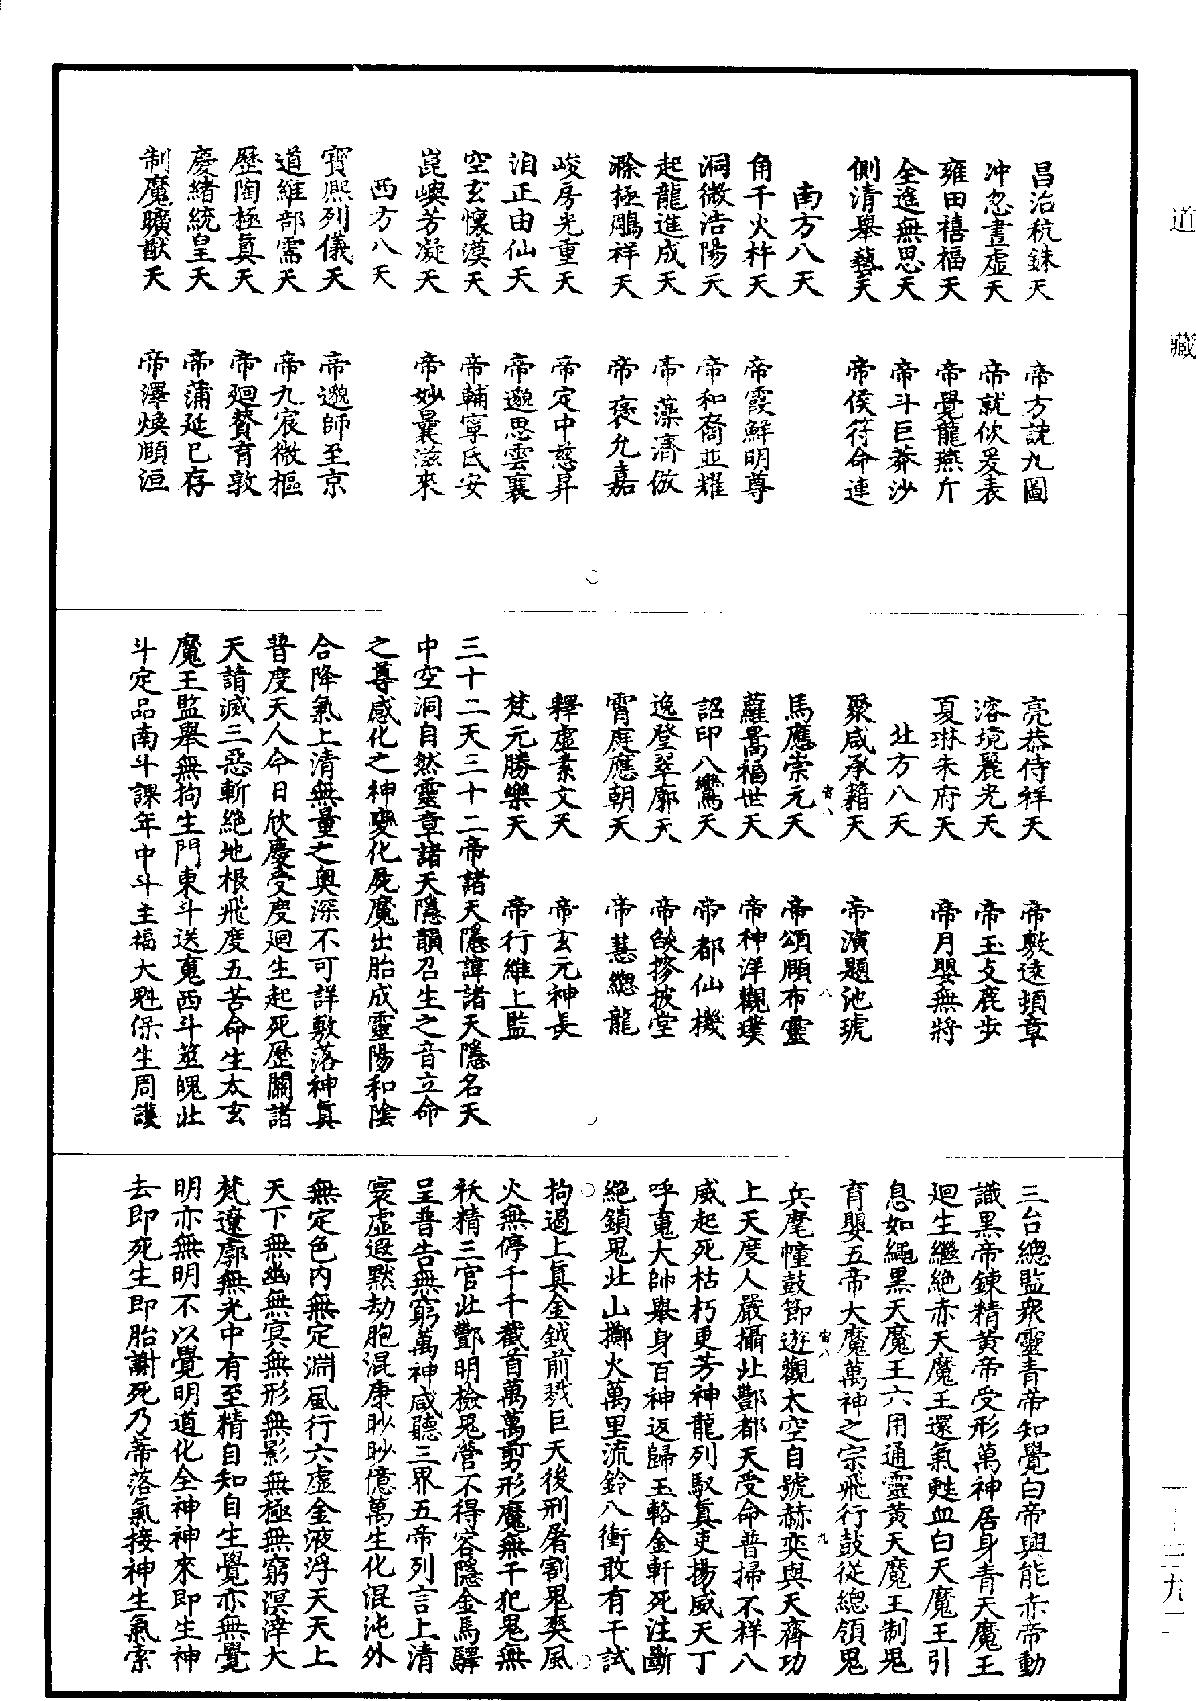 道藏
昌治秔銖天　帝方說九圖
沖忽晝虛天　帝就伙爰表
雍田禧樞天　帝覺龍燕斤
全進無思天　帝斗巨莽沙
側清舉藝天　帝侯符命連
南方八天
角千火杵天　帝霞鮮明尊
洞微浩陽天　帝和裔並耀
起龍進成天　帝藻濟倣
滁極鵰祥天　帝褒允嘉
峻房光重天　帝定中慈昇
洎正由仙天　帝邈思雲襄
空玄懷漠天　帝輔寧氏安
崑嶼芳凝天　帝妙曩滋來
西方八天
寶熙列儀天　帝邈師至京
道維部需天　帝九宸微樞
歷陶極真天　帝廻贊育敦
慶緒統皇天　帝蒲延巳存
制魔曠猷天　帝澤煥頤洹
亮恭侍祥天　帝敷遠頻章
溶境麗光天　帝玉攴鹿步
夏琳朱府天　帝月嬰無將
北方八天
聚咸承籍天　帝演題池琥
馬應崇元天　帝頌願布靈
蘿暠福世天　帝神洋觀璞
詔印八鸞天　帝都仙機
逸登翠廓天　帝燄摻披堂
霄庭應朝天　帝慧總龍
釋虛素文天　帝玄元神長
梵元勝樂天　帝行維上監
三十二天三十二帝諸天隱諱諸天隱名天
中空洞自然靈章諸天隱韻召生之音立命
之尊感化之神變化屍魔出胎成靈陽和陰
合降氣上清無量之奧深不可詳敷落神真
普度天人今日欣慶受度廻生起死歷關諸
天請滅三惡斬絕地根飛度五苦命生太玄
魔王監舉無拘生門東斗送䰟西斗筮魄北
斗定品南斗課年中斗主福大魁保生周護
三台總監衆靈青帝知覺白帝興能赤帝動
識黑帝鍊精黃帝受形萬神居身青天魔王
廻生繼絕赤天魔王還氣甦血白天魔王引
息如繩黑天魔王六用通靈黃天魔王制鬼
育嬰五帝大魔萬神之宗飛行鼓從總領鬼
兵麾幢鼓節遊觀太空自號赫奕與天齊功
上天度人嚴攝北酆都天受命普掃不祥八
威起死枯朽更芳神龍列馭真吏揚威天丁
呼䰟大帥舉身百神返歸玉輅金軒死注斷
絕鎖鬼北山擲火萬里流鈴八衝敢有干試
拘遏上真金鉞前戮巨天後刑屠割鬼爽風
火無停千千截首萬萬剪形魔無干犯鬼無
秗精三官北酆明檢鬼營不得容隱金馬驛
呈普告無窮萬神咸聽三界五帝列言上清
寰虛遐黙劫胞混康眇眇億萬生化混沌外
無定色內無定淵風行六虛金液浮天天上
天下無幽無冥無形無影無極無窮溟涬大
梵遼廓無光中有至精自知自生覺亦無覺
明亦無明不以覺明道化全神神來即生神
去即死生即胎謝死乃蒂落氣接神生氣索